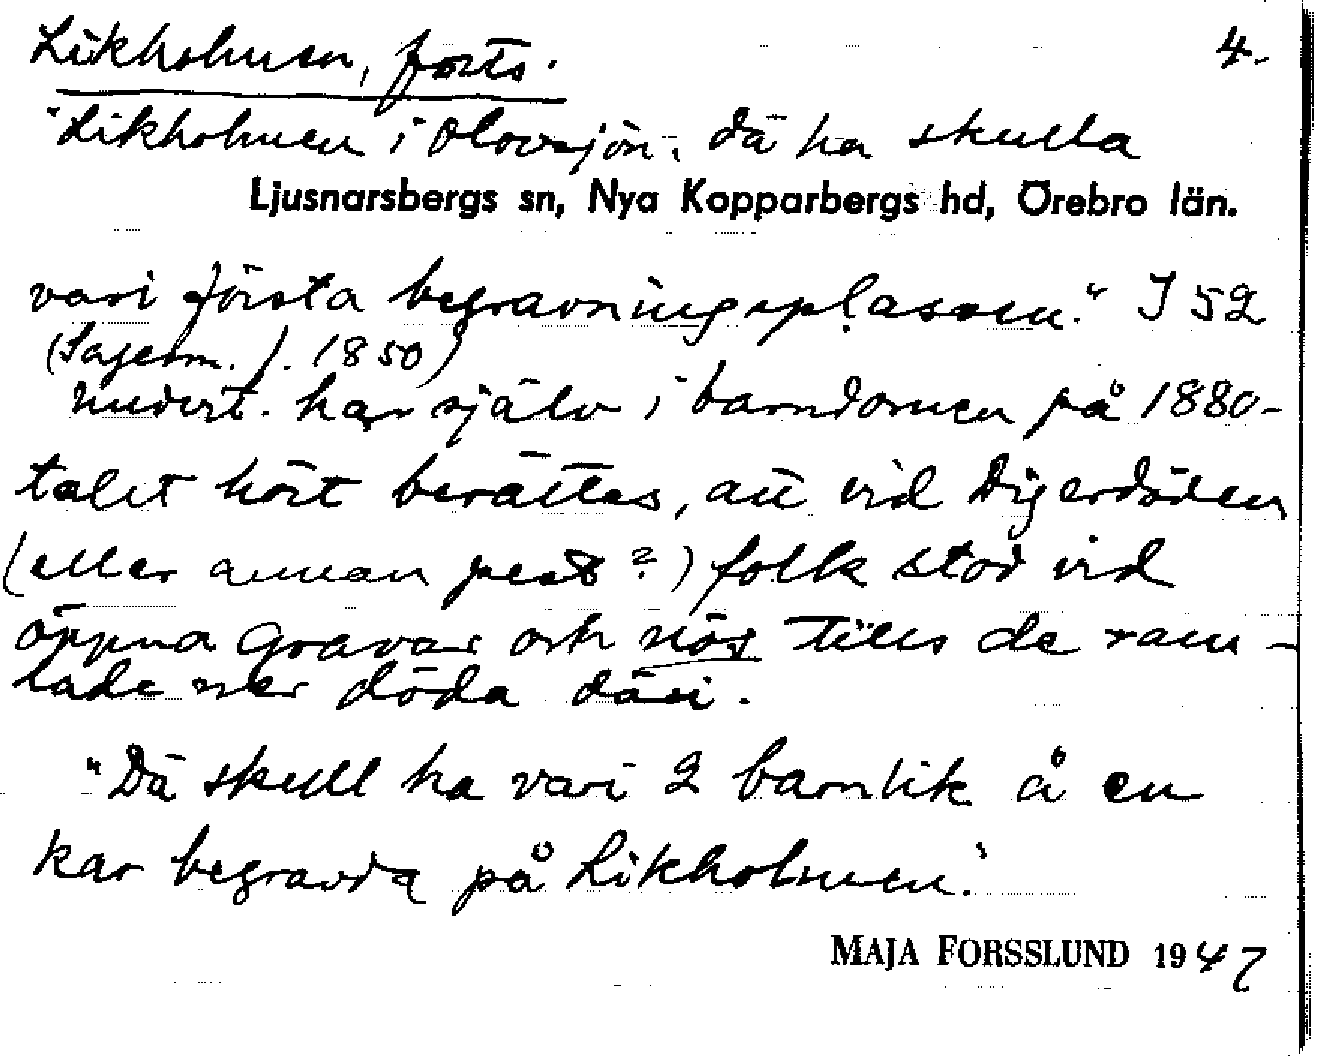 Likholmen, forts. 4.
"Likholmen i Olovsjön, dä ha skulla
Ljusnarsbergs sn, Nya Kopparbergs hd, Örebro län.
vari första begravningsplassen." I 52
(Sagesm. f. 1850)
Undert. har själv i barndomen på 1880-
talet hört berättas, att vid Digerdöden
(eller annan pest?) folk stod vid
öppna gravar och nös tills de ram-
lade ner döda däri.
"Dä skull ha vari 2 barnlik å en
kar begravda på Likholmen."
MAJA FORSSLUND 1947